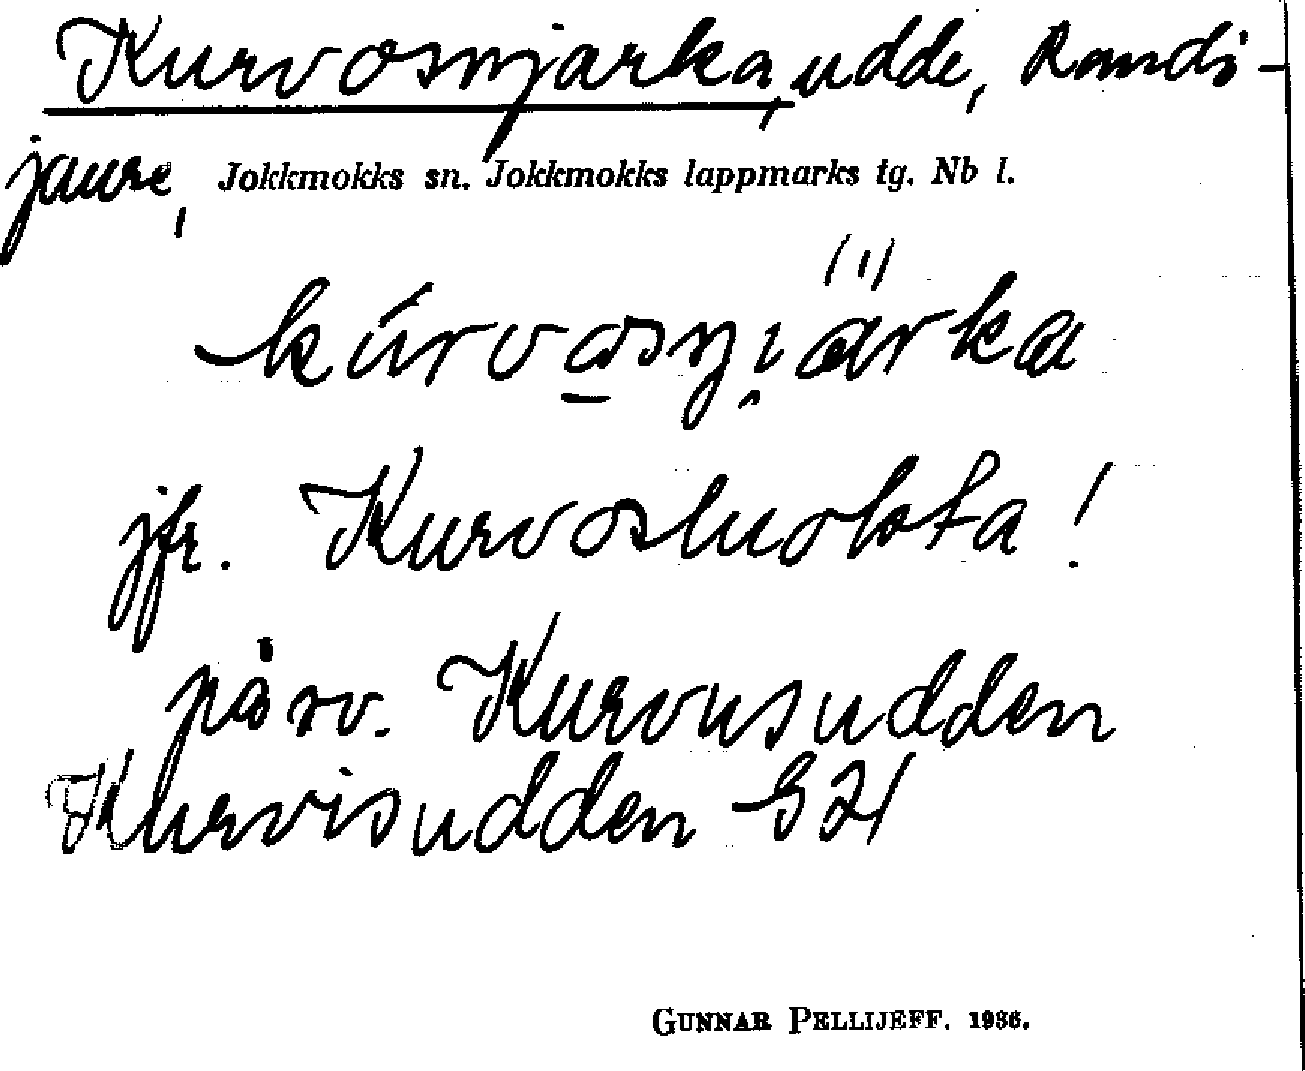 Kurvosnjarka, udde, Randi-
jaure, Jokkmokks sn. Jokkmokks lappmarks tg. Nb l.
kúrvo̲sŋi̭ärka
jfr. Kurvosluokta!
på sv. Kurvusudden
Kurvisudden G21
GUNNAR PELLIJEFF. 1936.